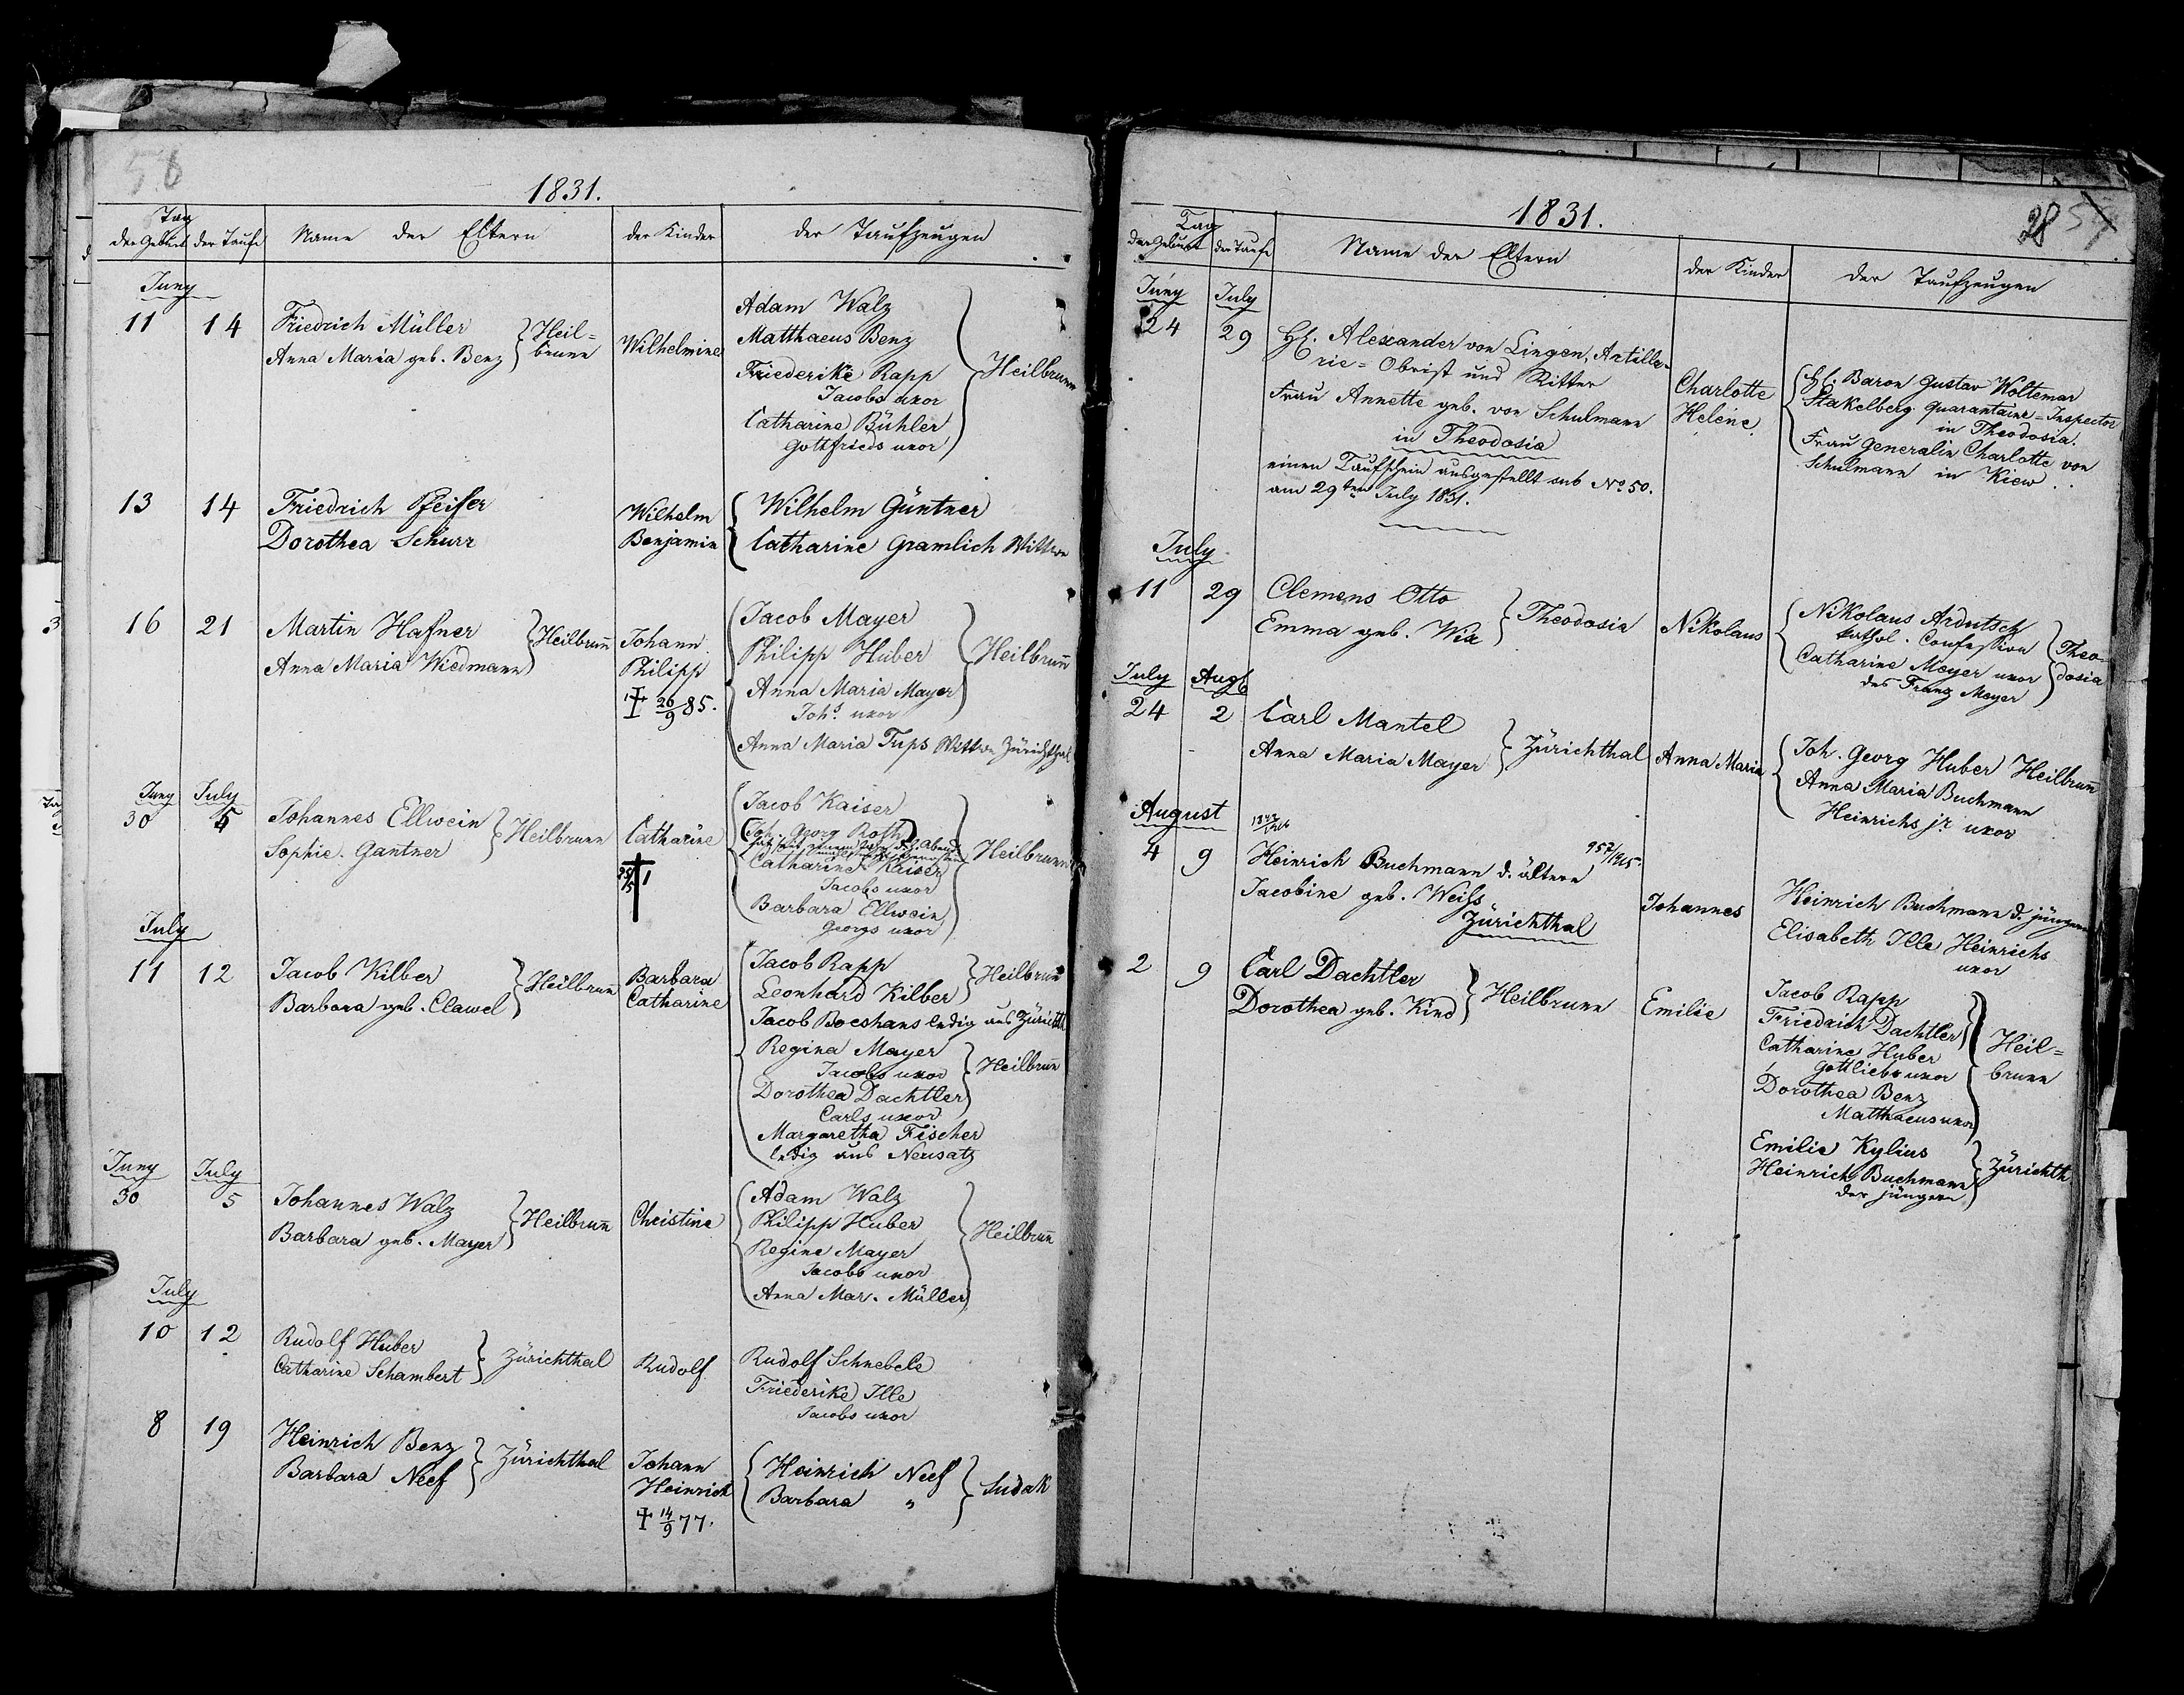 56
1831.
Tag
der Geburt der Taufe Name der Eltern der Kinder der Taufzeugen
Juny
11 14 Friedrich Müller
Anna Maria geb. Benz
Heil=
brunn
Wilhelmine
Adam Walz
Matthaeus Benz
Friederike Rapp
Jacobs uxor
Catharine Bühler
Gottfrieds uxor
Heilbrunn
13 14 Friedrich Pfeifer
Dorothea Schurr
Wilhelm
Benjamin
Wilhelm Güntner
Catharine Gramlich Wittwe
16 21 Martin Hafner
Anna Maria Wiedmann
Heilbrun̄
Johann
Philipp
† 26/9 85.
Jacob Mayer
Philipp Huber
Anna Maria Mayer
Johs. uxor
Heilbrun̄
Anna Maria Tups Wittwe Zürichthal
Juny July
30 5 Johannes Ellwein
Sophie Gantner
Heilbrunn
Catharine
†
Jacob Kaiser
(Joh. Georg Roth)
Catharine Kaiser
Jacobs uxor
Barbara Ellwein
Georgs uxor
Heilbrunn
July
11 12 Jacob Kilber
Barbara geb. Clawel
Heilbrun̄
Barbara
Catharine
Jacob Rapp
Leonhard Kilber
Heilbrun̄
Jacob Boeshans ledig aus Zürichth
Regina Mayer
Jacobs uxor
Dorothea Dachtler
Carls uxor
Heilbrun̄
Margaretha Fischer
ledig aus Neusatz
Juny July
30 5 Johannes Walz
Barbara geb. Mayer
Heilbrun̄
Christine
Adam Walz
Philipp Huber
Regine Mayer
Jacobs uxor
Anna Mar. Müller
Heilbrun̄
July
10 12 Rudolf Huber
Catharine Schambert
Zürichthal
Rudolf
Rudolf Schnebele
Friederike Ille
Jacobs uxor
8 19 Heinrich Benz
Barbara Neef
Zürichthal
Johann
Heinrich
† 14/9 77.
Heinrich Neef
Barbara "
Sudak
1831.
28 57
Tag
der Geburt der Taufe Name der Eltern der Kinder der Taufzeugen
Juny July
24 29 H. Alexander von Lingen, Artille-
rie=Obrist und Ritter
Frau Annette geb. von Schulmann
in Theodosia
einen Taufschein ausgestellt sub No. 50.
am 29ten July 1831.
Charlotte
Helene
H. Baron Gustav Woltemar
Stakelberg Quarantaine=Inspector
in Theodosia.
Frau Generalin Charlotte von
Schulmann in Kiew.
July
11 29 Clemens Otto
Emma geb. Wix
Theodosia
Nikolaus
Nikolaus Ardutsch
kathol. Confession
Catharine Mayer uxor
des Franz Mayer
Theo-
dosia
July Aug
24 2 Carl Mantel
Anna Maria Mayer
Zürichthal
Anna Maria
Joh. Georg Huber Heilbrun̄
Anna Maria Buchmann
Heinrichs jr. uxor
August
4 9 Heinrich Buchmann d. ältere
957/1915.
Jacobine geb. Weiss
Zürichthal
Johannes
Heinrich Buchmann d. jüngere
Elisabeth Ille Heinrichs
uxor
2 9 Carl Dachtler
Dorothea geb. Kind
Heilbrunn
Emilie
Jacob Rapp
Friedrich Dachtler
Catharine Huber
Gottliebs uxor
Dorothea Benz
Matthaeus uxor
Heil=
brunn
Emilie Kylius
Heinrich Buchmann
der jüngere
Zürichth